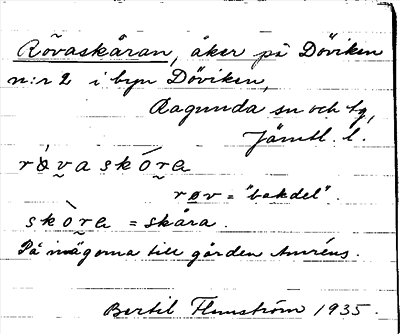 Rövaskåran, åker på Döviken
n:r 2 i byn Döviken,
Ragunda sn och tg,
Jämtl. l.
røvaskóra
røv = "bakdel".
skòra = skåra.
På inägorna till gården Amréns.
Bertil Flemström 1935.